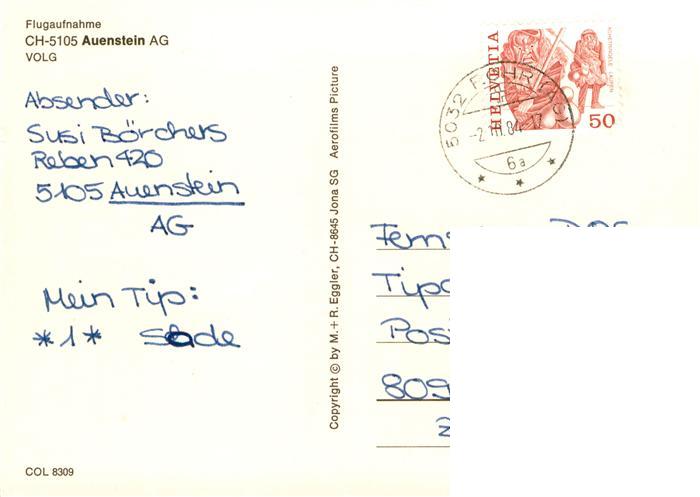 Flugaufnahme
CH-5105 Auenstein AG
VOLG
Absender:
Susi Börchers
Reben 420
5105 Auenstein
AG
Mein Tip:
*1* Sade
COL 8309
Copyright © by M. + R. Eggler, CH-8645 Jona SG Aerofilms Picture
HELVETIA
50
5032
-2.III.84-17
6a
809